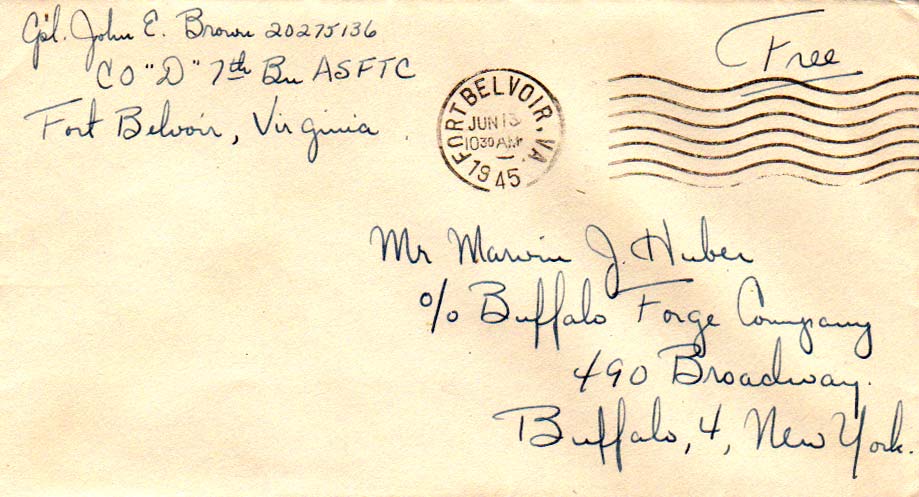 Cpl. John E. Brown 20275136
CO "D" 7th Bn ASFTC
Fort Belvoir, Virginia
Free
FORT BELVOIR, VA.
JUN 13
1030 AM
1945
Mr Marvin J. Huber
% Buffalo Forge Company
490 Broadway.
Buffalo, 4, New York.